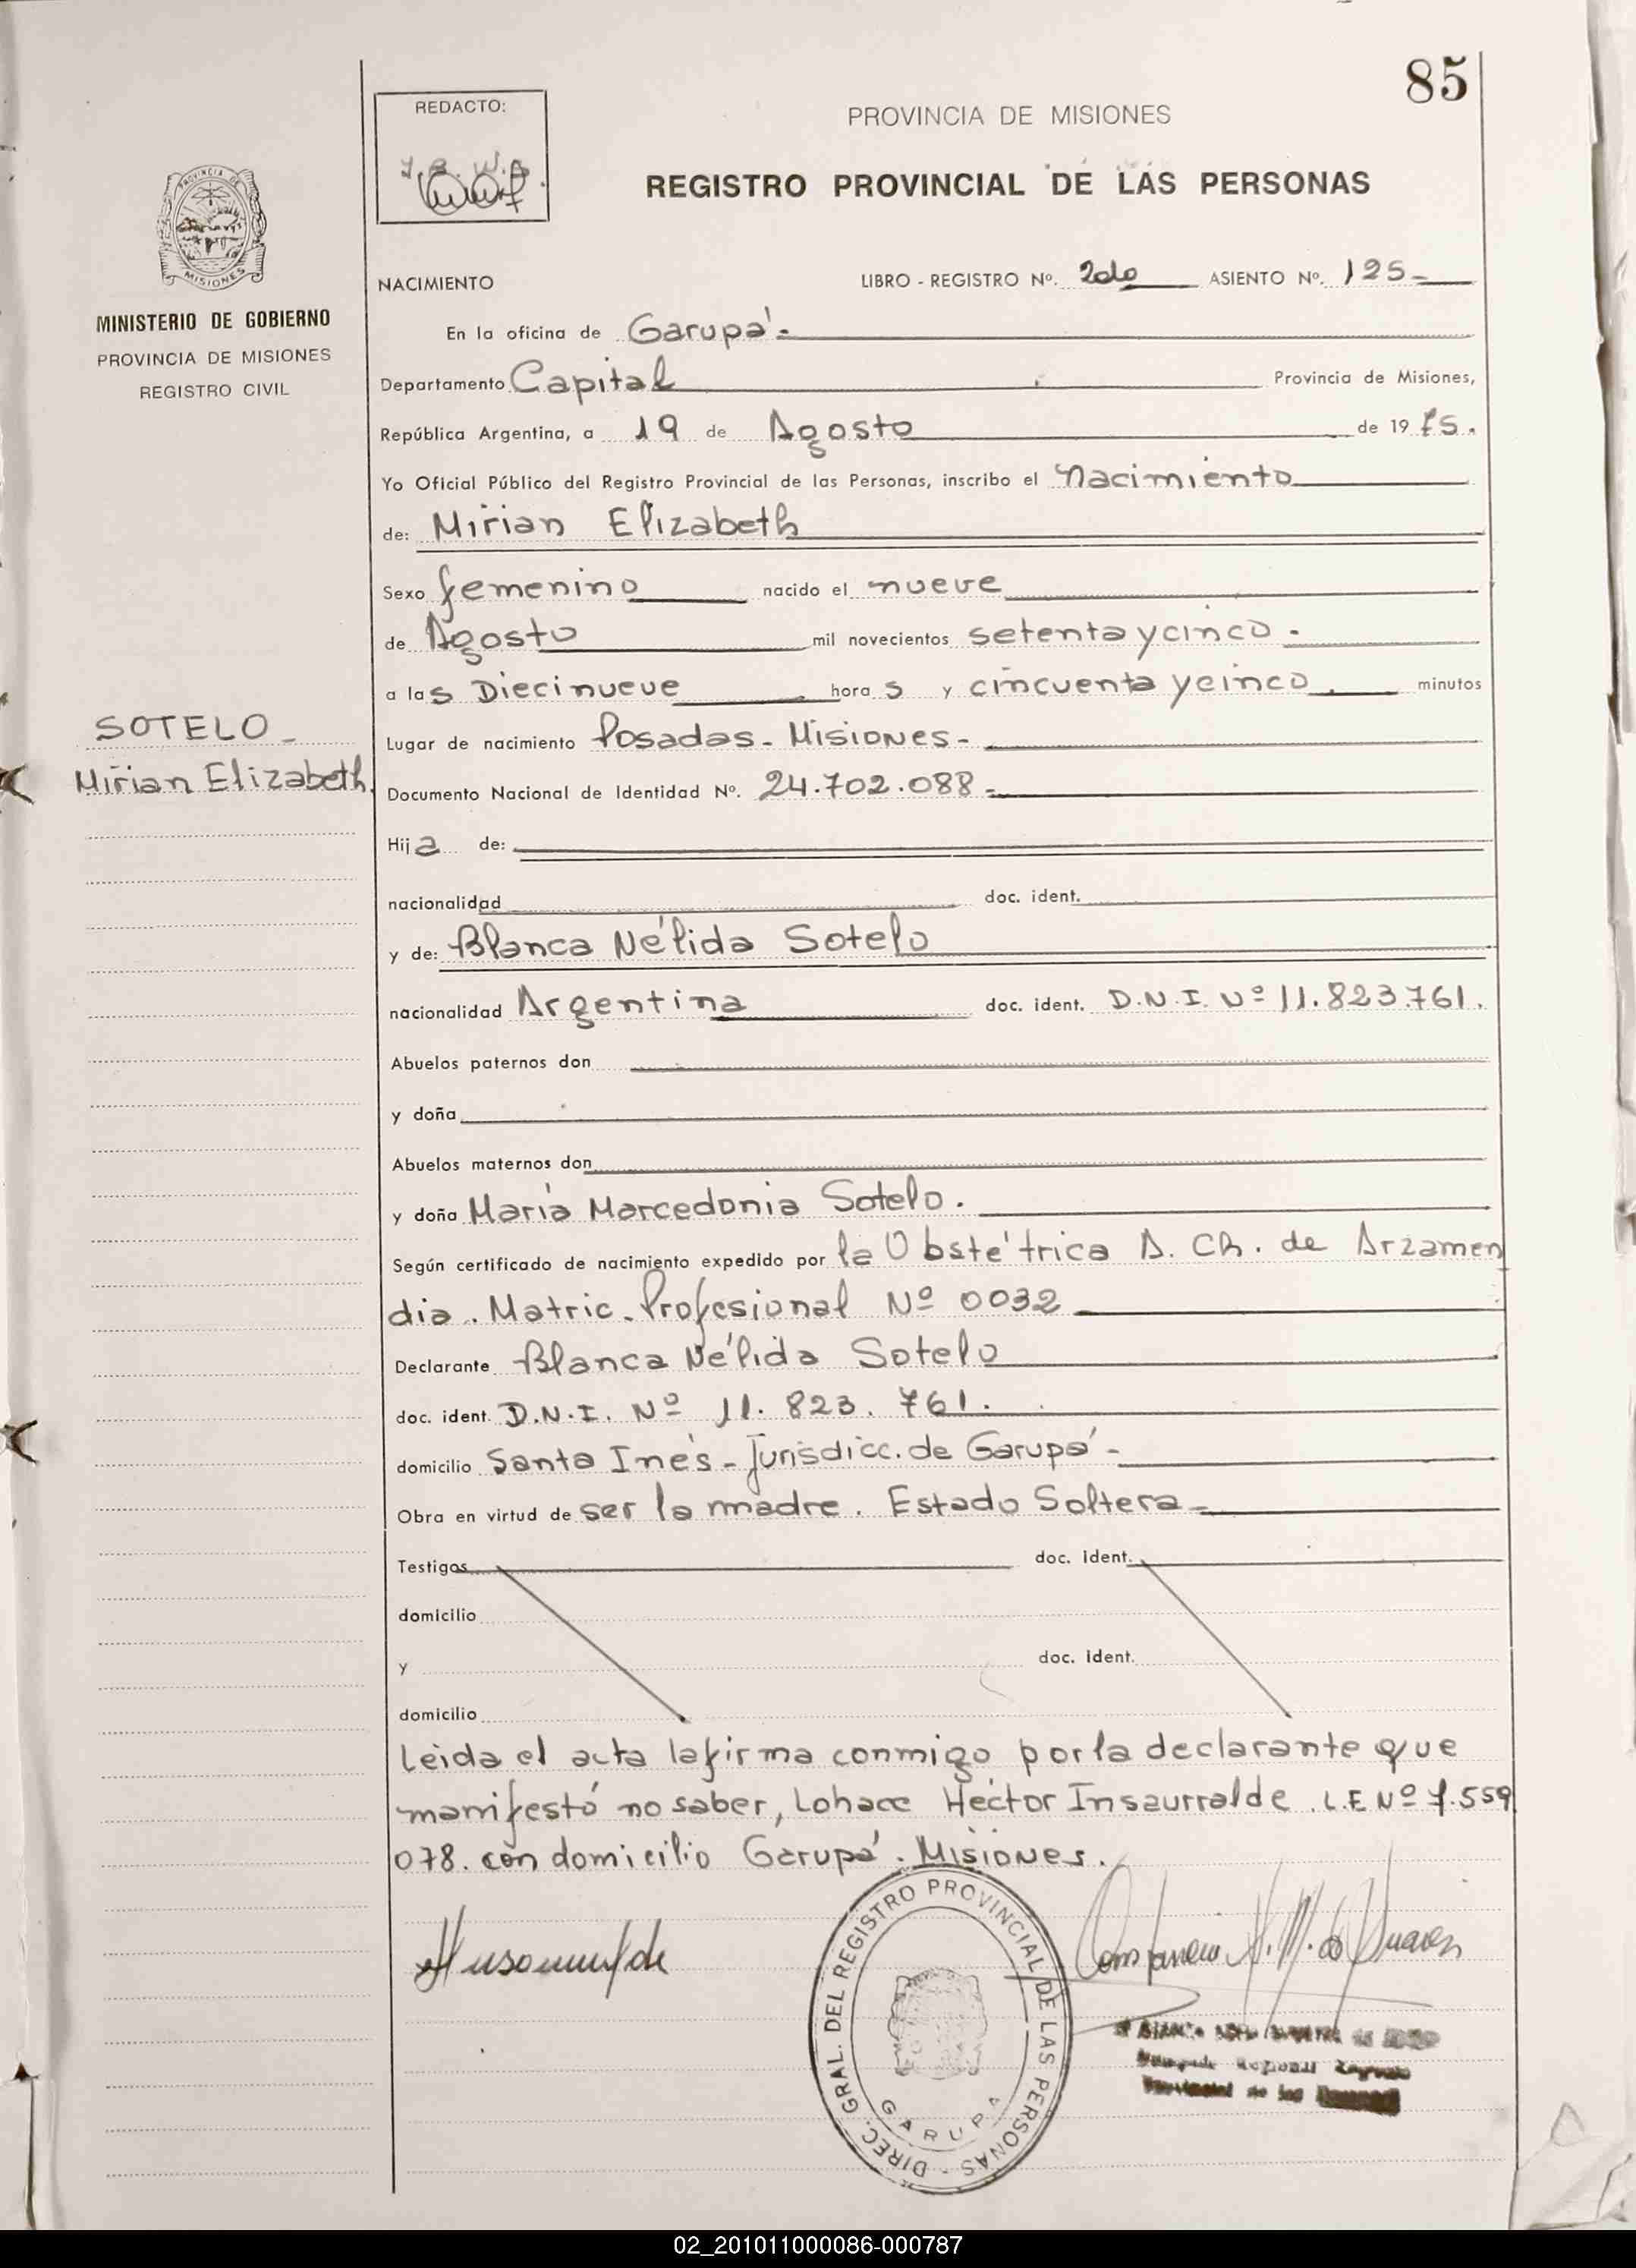 85
REDACTO:
PROVINCIA DE MISIONES
REGISTRO PROVINCIAL DE LAS PERSONAS
PROVINCIA DE
MISIONES
MINISTERIO DE GOBIERNO
PROVINCIA DE MISIONES
REGISTRO CIVIL
NACIMIENTO LIBRO - REGISTRO Nº. 2do ASIENTO Nº. 125-
En la oficina de Garupá-
Departamento Capital Provincia de Misiones,
República Argentina, a 19 de Agosto de 1975.
Yo Oficial Público del Registro Provincial de las Personas, inscribo el Nacimiento
de: Mirian Elizabeth
Sexo femenino nacido el nueve
de Agosto mil novecientos setenta y cinco.
a las Diecinueve horas y cincuenta y cinco minutos
SOTELO-
Mirian Elizabeth.
Lugar de nacimiento Posadas - Misiones -
Documento Nacional de Identidad Nº. 24.702.088-
Hija de:
nacionalidad doc. ident.
y de: Blanca Nélida Sotelo
nacionalidad Argentina doc. ident. D.N.I. Nº 11.823.761.
Abuelos paternos don
y doña
Abuelos maternos don
y doña María Marcedonia Sotelo.
Según certificado de nacimiento expedido por la Obstétrica A. Ch. de Arzamen
dia. Matric. Profesional Nº 0032
Declarante Blanca Nélida Sotelo
doc. ident. D.N.I. Nº 11.823.761.
domicilio Santa Inés - Jurisdicc. de Garupá-
Obra en virtud de ser la madre. Estado Soltera-
Testigos doc. ident.
domicilio
y doc. ident.
domicilio
Leida el acta la firma conmigo por la declarante que
manifestó no saber, Lo hace Héctor Insaurralde. L.E Nº 7.559
078. con domicilio Garupá. Misiones.
DIREC. GRAL. DEL REGISTRO PROVINCIAL DE LAS PERSONAS -
GARUPA
02_201011000086-000787